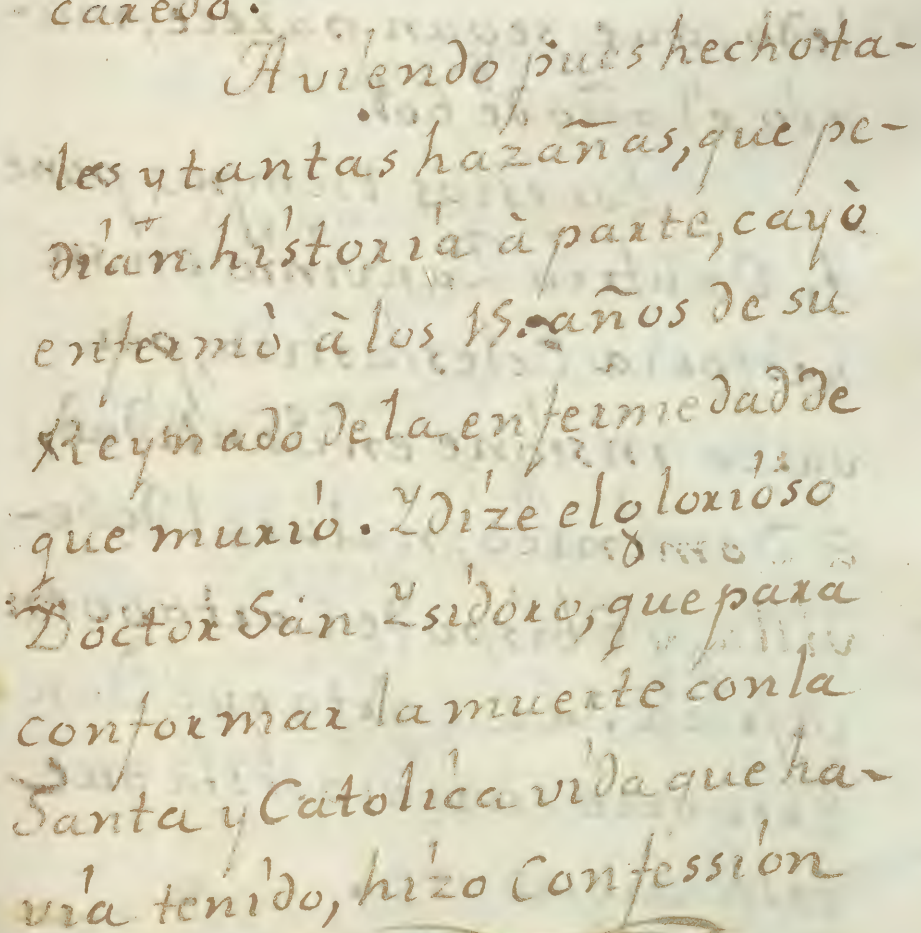 caredo.
Aviendo pues hecho ta-
les y tantas hazañas, que pe-
dian historia à parte, cayò
enfermò à los 15. años de su
Reynado de la enfermedad de
que murió. Y dize el glorioso
Doctor San Ysidoro, que para
conformar la muerte con la
Santa y Catolica vida que ha-
via tenido, hizo Confession